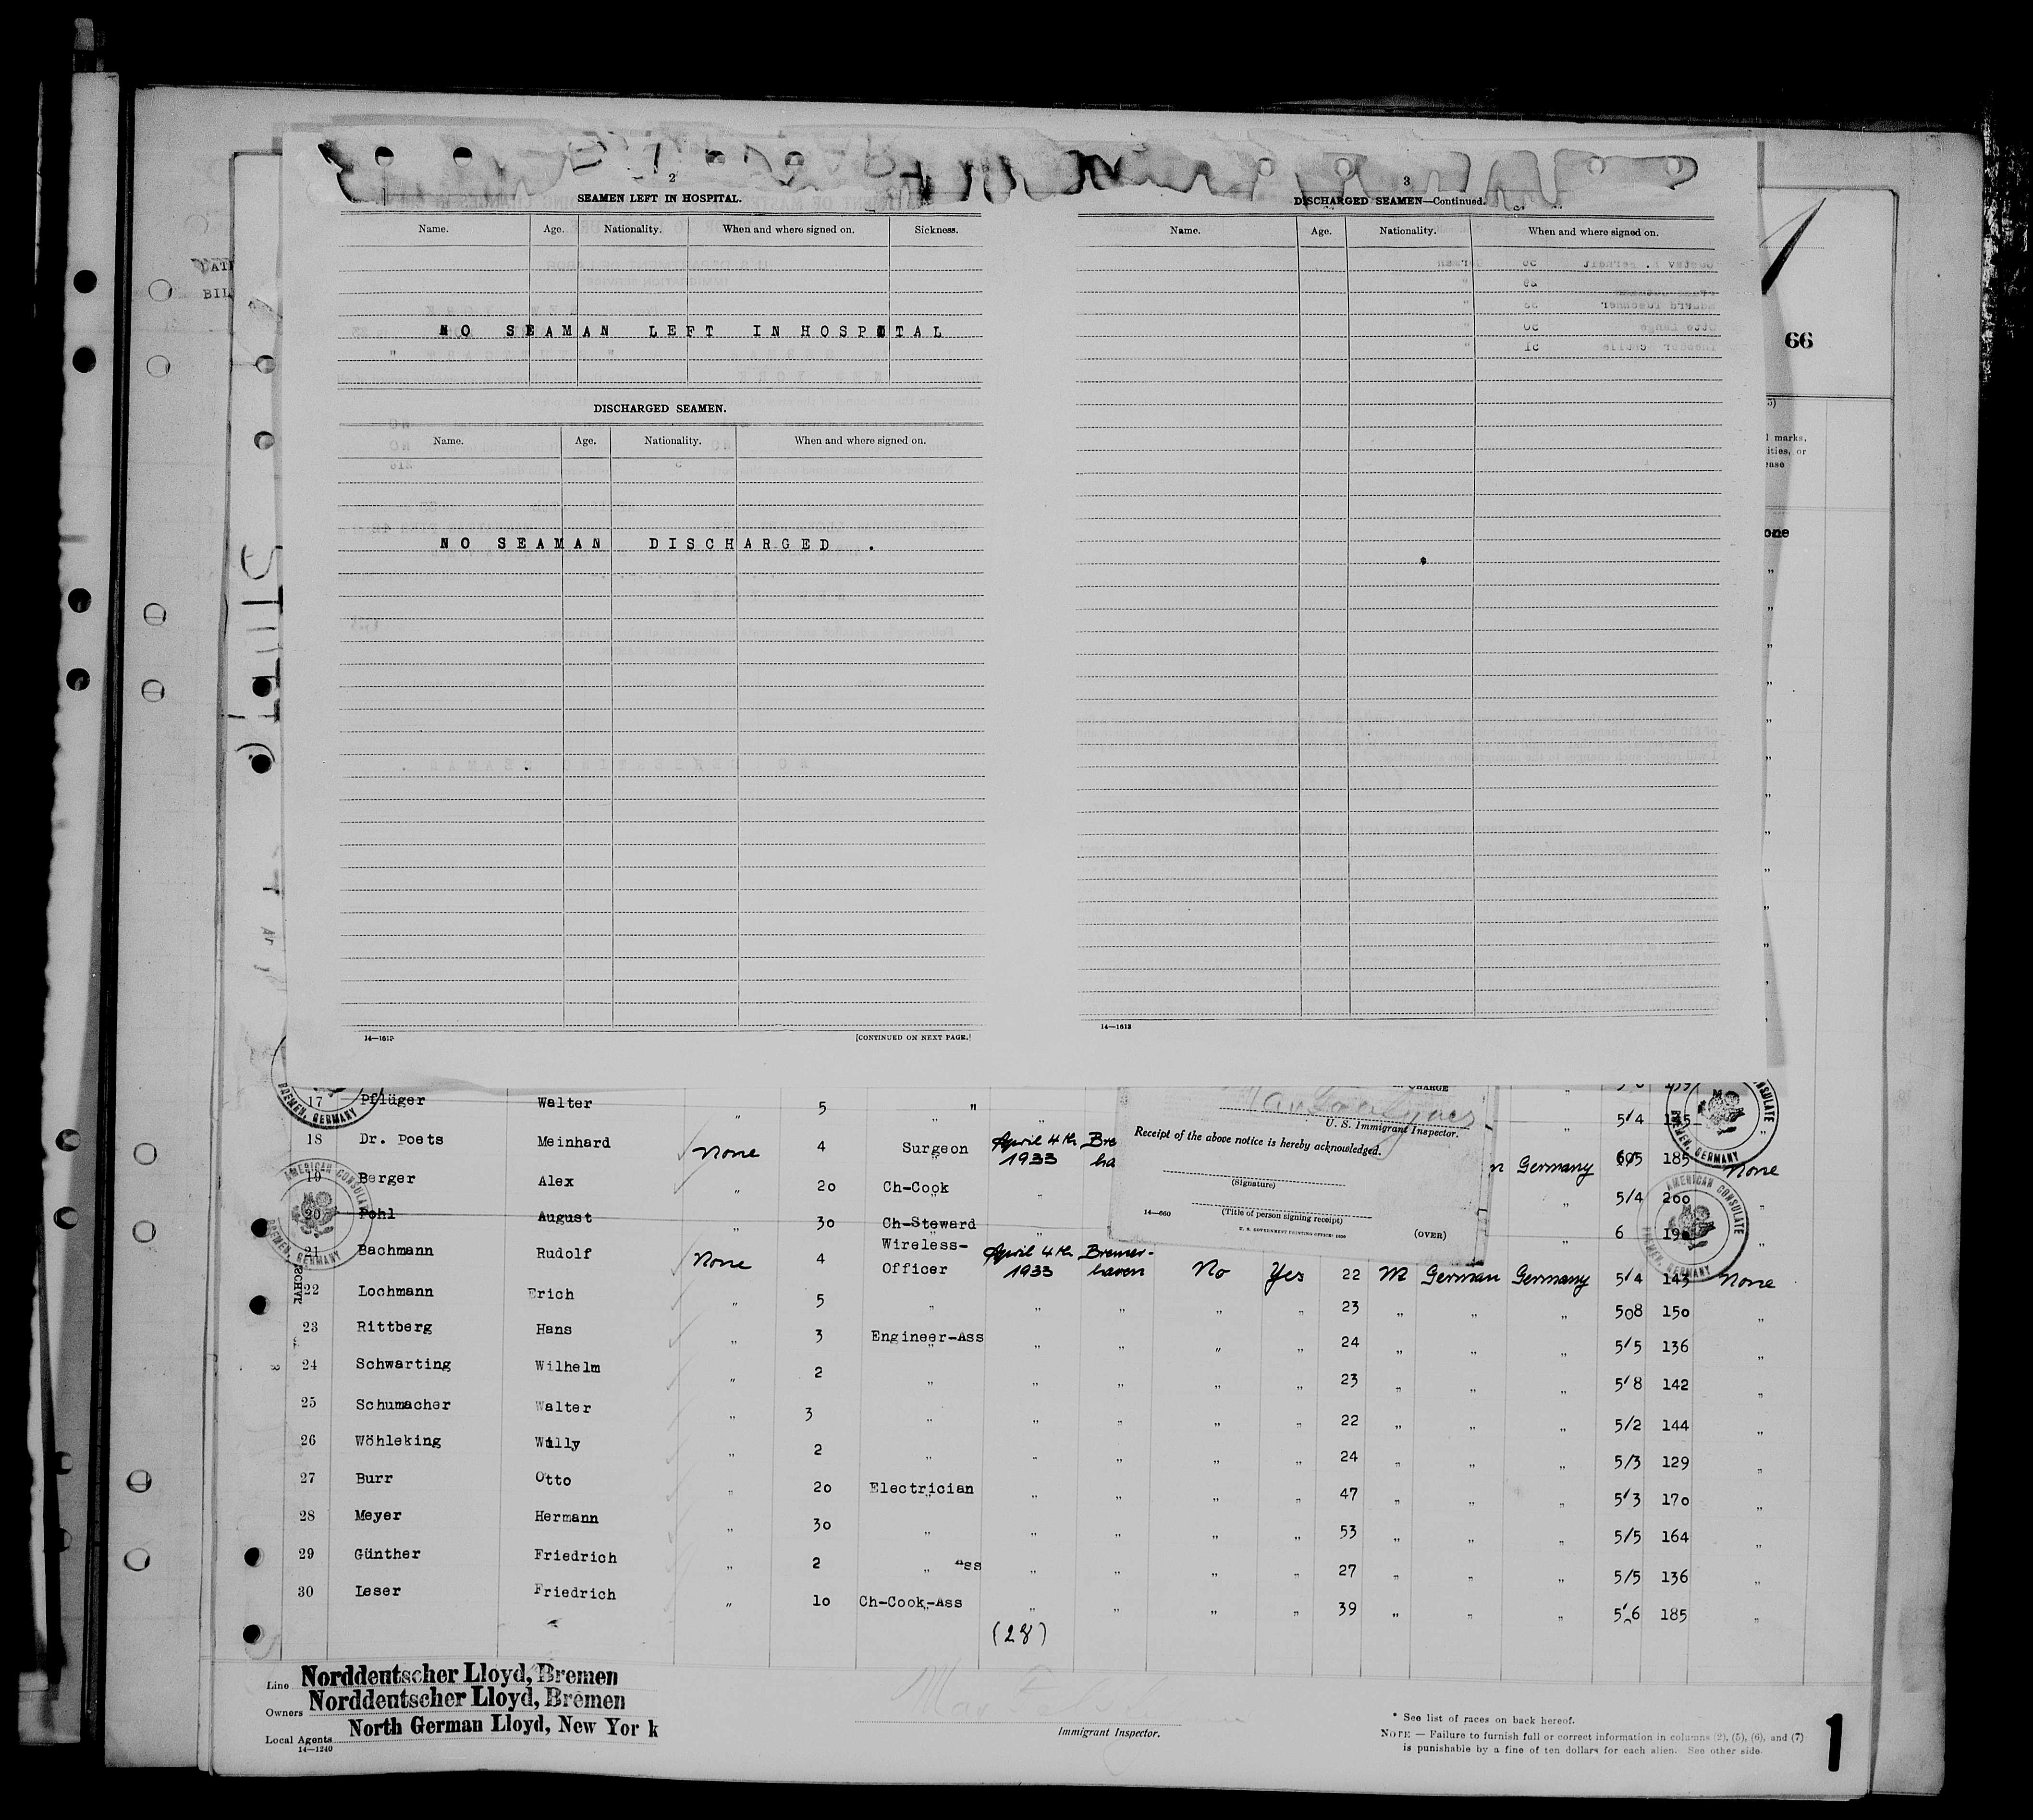 2
SEAMEN LEFT IN HOSPITAL.
Name. Age. Nationality. When and where signed on. Sickness.
NO SEAMAN LEFT IN HOSPITAL
DISCHARGED SEAMEN.
Name. Age. Nationality. When and where signed on.
NO SEAMAN DISCHARGED .
14—1613
[CONTINUED ON NEXT PAGE.]
3
DISCHARGED SEAMEN—Continued.
Name. Age. Nationality. When and where signed on.
14—1613
66
BIL
marks,
ities, or
ease
one
CHARGE
U. S. Immigrant Inspector.
Receipt of the above notice is hereby acknowledged.
(Signature)
(Title of person signing receipt)
14—660
U. S. GOVERNMENT PRINTING OFFICE
(OVER)
17 Pflüger Walter „ 5 " „ 5'4 145
18 Dr. Poets Meinhard None 4 Surgeon April 4th 1933 Bre ha n Germany 185 None
19 Berger Alex „ 20 Ch-Cook „ „ 5/4 200 „
20 Pohl August „ 30 Ch-Steward „ 6 „
21 Bachmann Rudolf None 4 Wireless-Officer April 4th 1933 Bremer-haven No Yes 22 M German Germany 5'4 143 None
22 Lochmann Erich „ 5 „ „ „ „ „ 23 „ „ „ 508 150 „
23 Rittberg Hans „ 3 Engineer-Ass „ „ „ „ 24 „ „ „ 5'5 136 „
24 Schwarting Wilhelm „ 2 „ „ „ „ „ 23 „ „ „ 5'8 142 „
25 Schumacher Walter „ 3 „ „ „ „ „ 22 „ „ „ 5/2 144 „
26 Wöhleking Willy „ 2 „ „ „ „ „ 24 „ „ „ 5/3 129 „
27 Burr Otto „ 20 Electrician „ „ „ „ 47 „ „ „ 5'3 170 „
28 Meyer Hermann „ 30 „ „ „ „ „ 53 „ „ „ 5/5 164 „
29 Günther Friedrich „ 2 „ Ass „ „ „ „ 27 „ „ „ 5/5 136 „
30 Leser Friedrich „ 10 Ch-Cook-Ass „ „ „ „ 39 „ „ „ 5'6 185 „
(28)
AMERICAN CONSULATE
BREMEN, GERMANY
AMERICAN CONSULATE
BREMEN, GERMANY
Line Norddeutscher Lloyd, Bremen
Owners Norddeutscher Lloyd, Bremen
Local Agents North German Lloyd, New York
14—1240
Immigrant Inspector.
* See list of races on back hereof.
NOTE — Failure to furnish full or correct information in columns (2), (5), (6), and (7)
is punishable by a fine of ten dollars for each alien. See other side.
1